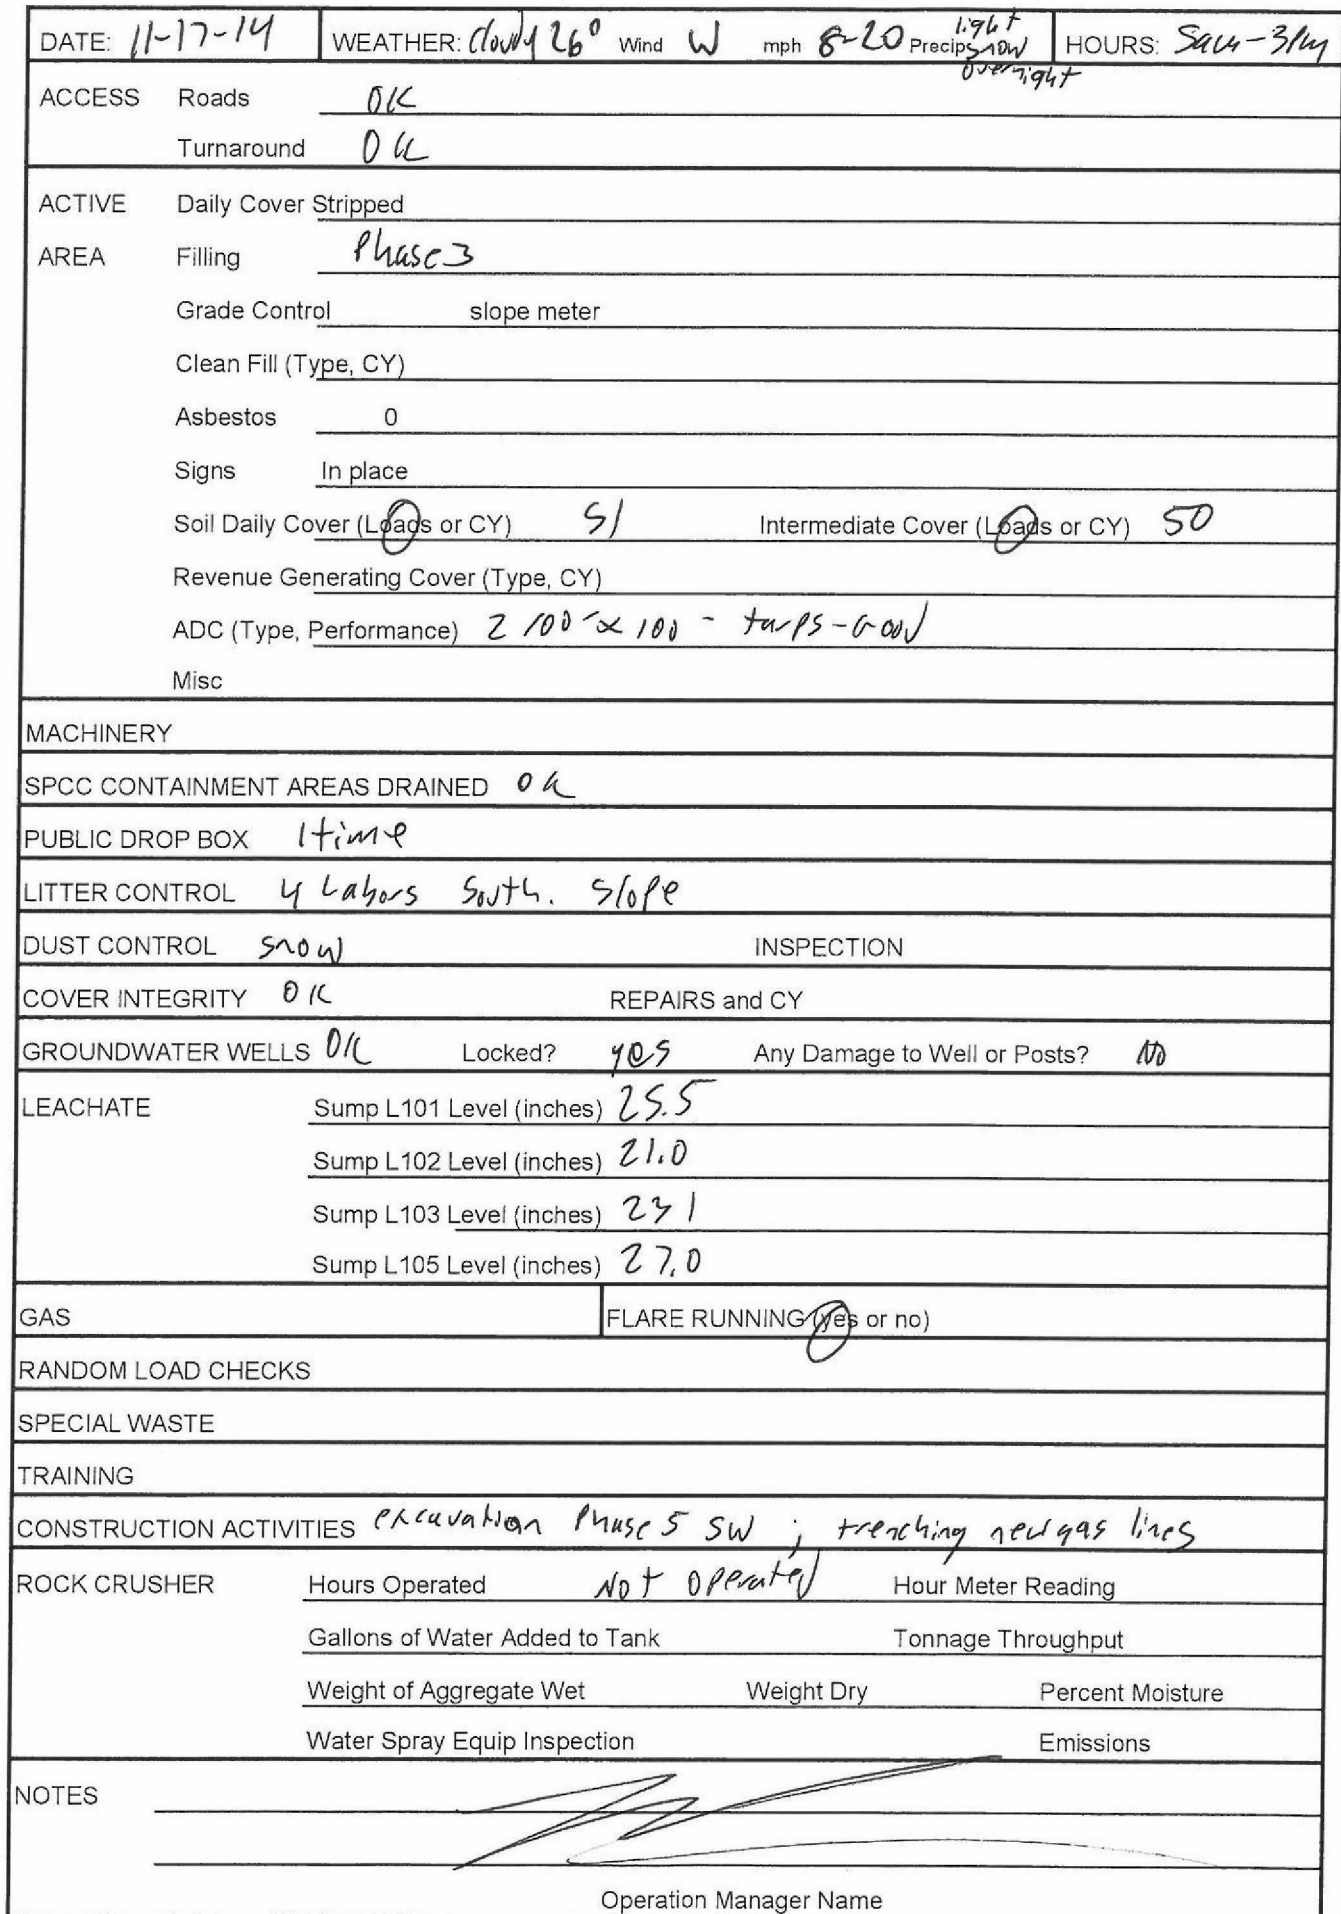 DATE: 11-17-14 WEATHER: Cloudy 26° Wind W mph 8-20 Precip light snow overnight HOURS: 5am-3pm
ACCESS Roads OK
Turnaround OK
ACTIVE Daily Cover Stripped
AREA Filling Phase 3
Grade Control slope meter
Clean Fill (Type, CY)
Asbestos 0
Signs In place
Soil Daily Cover (Loads or CY) 51 Intermediate Cover (Loads or CY) 50
Revenue Generating Cover (Type, CY)
ADC (Type, Performance) 2 100 x 100 - tarps - Good
Misc
MACHINERY
SPCC CONTAINMENT AREAS DRAINED OK
PUBLIC DROP BOX 1 time
LITTER CONTROL 4 Labors South. Slope
DUST CONTROL snow INSPECTION
COVER INTEGRITY OK REPAIRS and CY
GROUNDWATER WELLS OK Locked? yes Any Damage to Well or Posts? No
LEACHATE Sump L101 Level (inches) 25.5
Sump L102 Level (inches) 21.0
Sump L103 Level (inches) 23 1
Sump L105 Level (inches) 27.0
GAS FLARE RUNNING (yes or no)
RANDOM LOAD CHECKS
SPECIAL WASTE
TRAINING
CONSTRUCTION ACTIVITIES excavation Phase 5 SW ; trenching new gas lines
ROCK CRUSHER Hours Operated Not Operated Hour Meter Reading
Gallons of Water Added to Tank Tonnage Throughput
Weight of Aggregate Wet Weight Dry Percent Moisture
Water Spray Equip Inspection Emissions
NOTES
Operation Manager Name